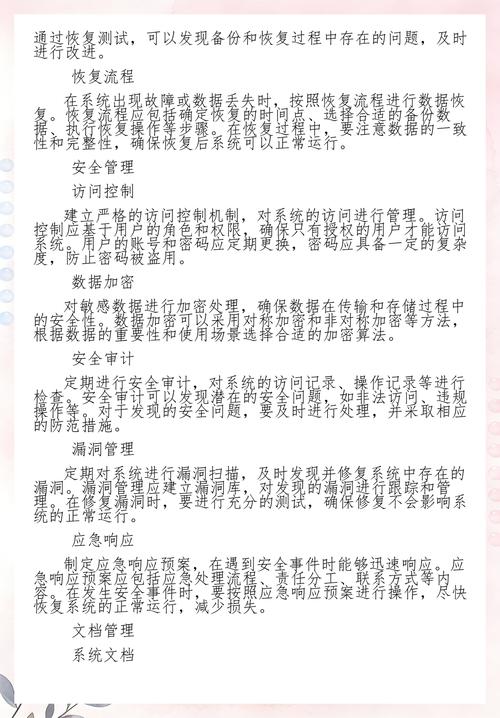 通过恢复测试，可以发现备份和恢复过程中存在的问题，及时
进行改进。
恢复流程
在系统出现故障或数据丢失时，按照恢复流程进行数据恢
复。恢复流程应包括确定恢复的时间点、选择合适的备份数
据、执行恢复操作等步骤。在恢复过程中，要注意数据的一致
性和完整性，确保恢复后系统可以正常运行。
安全管理
访问控制
建立严格的访问控制机制，对系统的访问进行管理。访问
控制应基于用户的角色和权限，确保只有授权的用户才能访问
系统。用户的账号和密码应定期更换，密码应具备一定的复杂
度，防止密码被盗用。
数据加密
对敏感数据进行加密处理，确保数据在传输和存储过程中
的安全性。数据加密可以采用对称加密和非对称加密等方法，
根据数据的重要性和使用场景选择合适的加密算法。
安全审计
定期进行安全审计，对系统的访问记录、操作记录等进行
检查。安全审计可以发现潜在的安全问题，如非法访问、违规
操作等。对于发现的安全问题，要及时进行处理，并采取相应
的防范措施。
漏洞管理
定期对系统进行漏洞扫描，及时发现并修复系统中存在的
漏洞。漏洞管理应建立漏洞库，对发现的漏洞进行跟踪和管
理。在修复漏洞时，要进行充分的测试，确保修复不会影响系
统的正常运行。
应急响应
制定应急响应预案，在遇到安全事件时能够迅速响应。应
急响应预案应包括应急处理流程、责任分工、联系方式等内
容。在发生安全事件时，要按照应急响应预案进行操作，尽快
恢复系统的正常运行，减少损失。
文档管理
系统文档